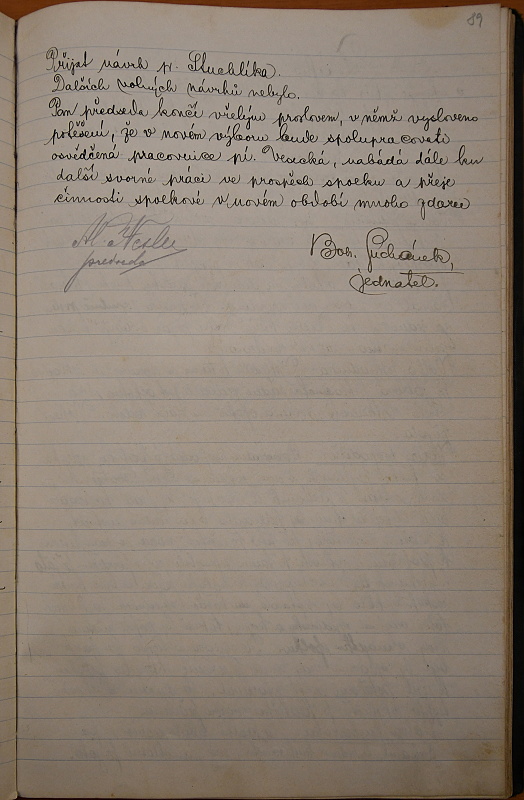 89
Přijat návrh p. Stuchlíka.
Dalších volných návrhů nebylo.
Pan předseda končí vřelým proslovem, v němž vysloveno
potěšení, že v novém výboru bude spolupracovati
osvědčená pracovnice pí. Vesecká, nabádá dále ku
další svorné práci ve prospěch spolku a přeje
činnosti spolkové v novém období mnoho zdaru
předseda
Boh.
jednatel.